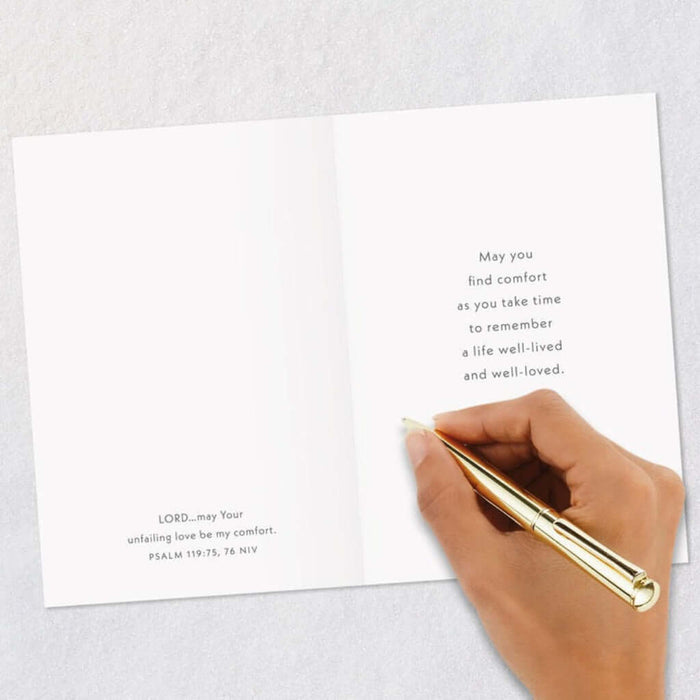 LORD...may Your
unfailing love be my comfort.
PSALM 119:75, 76 NIV
May you
find comfort
as you take time
to remember
a life well-lived
and well-loved.